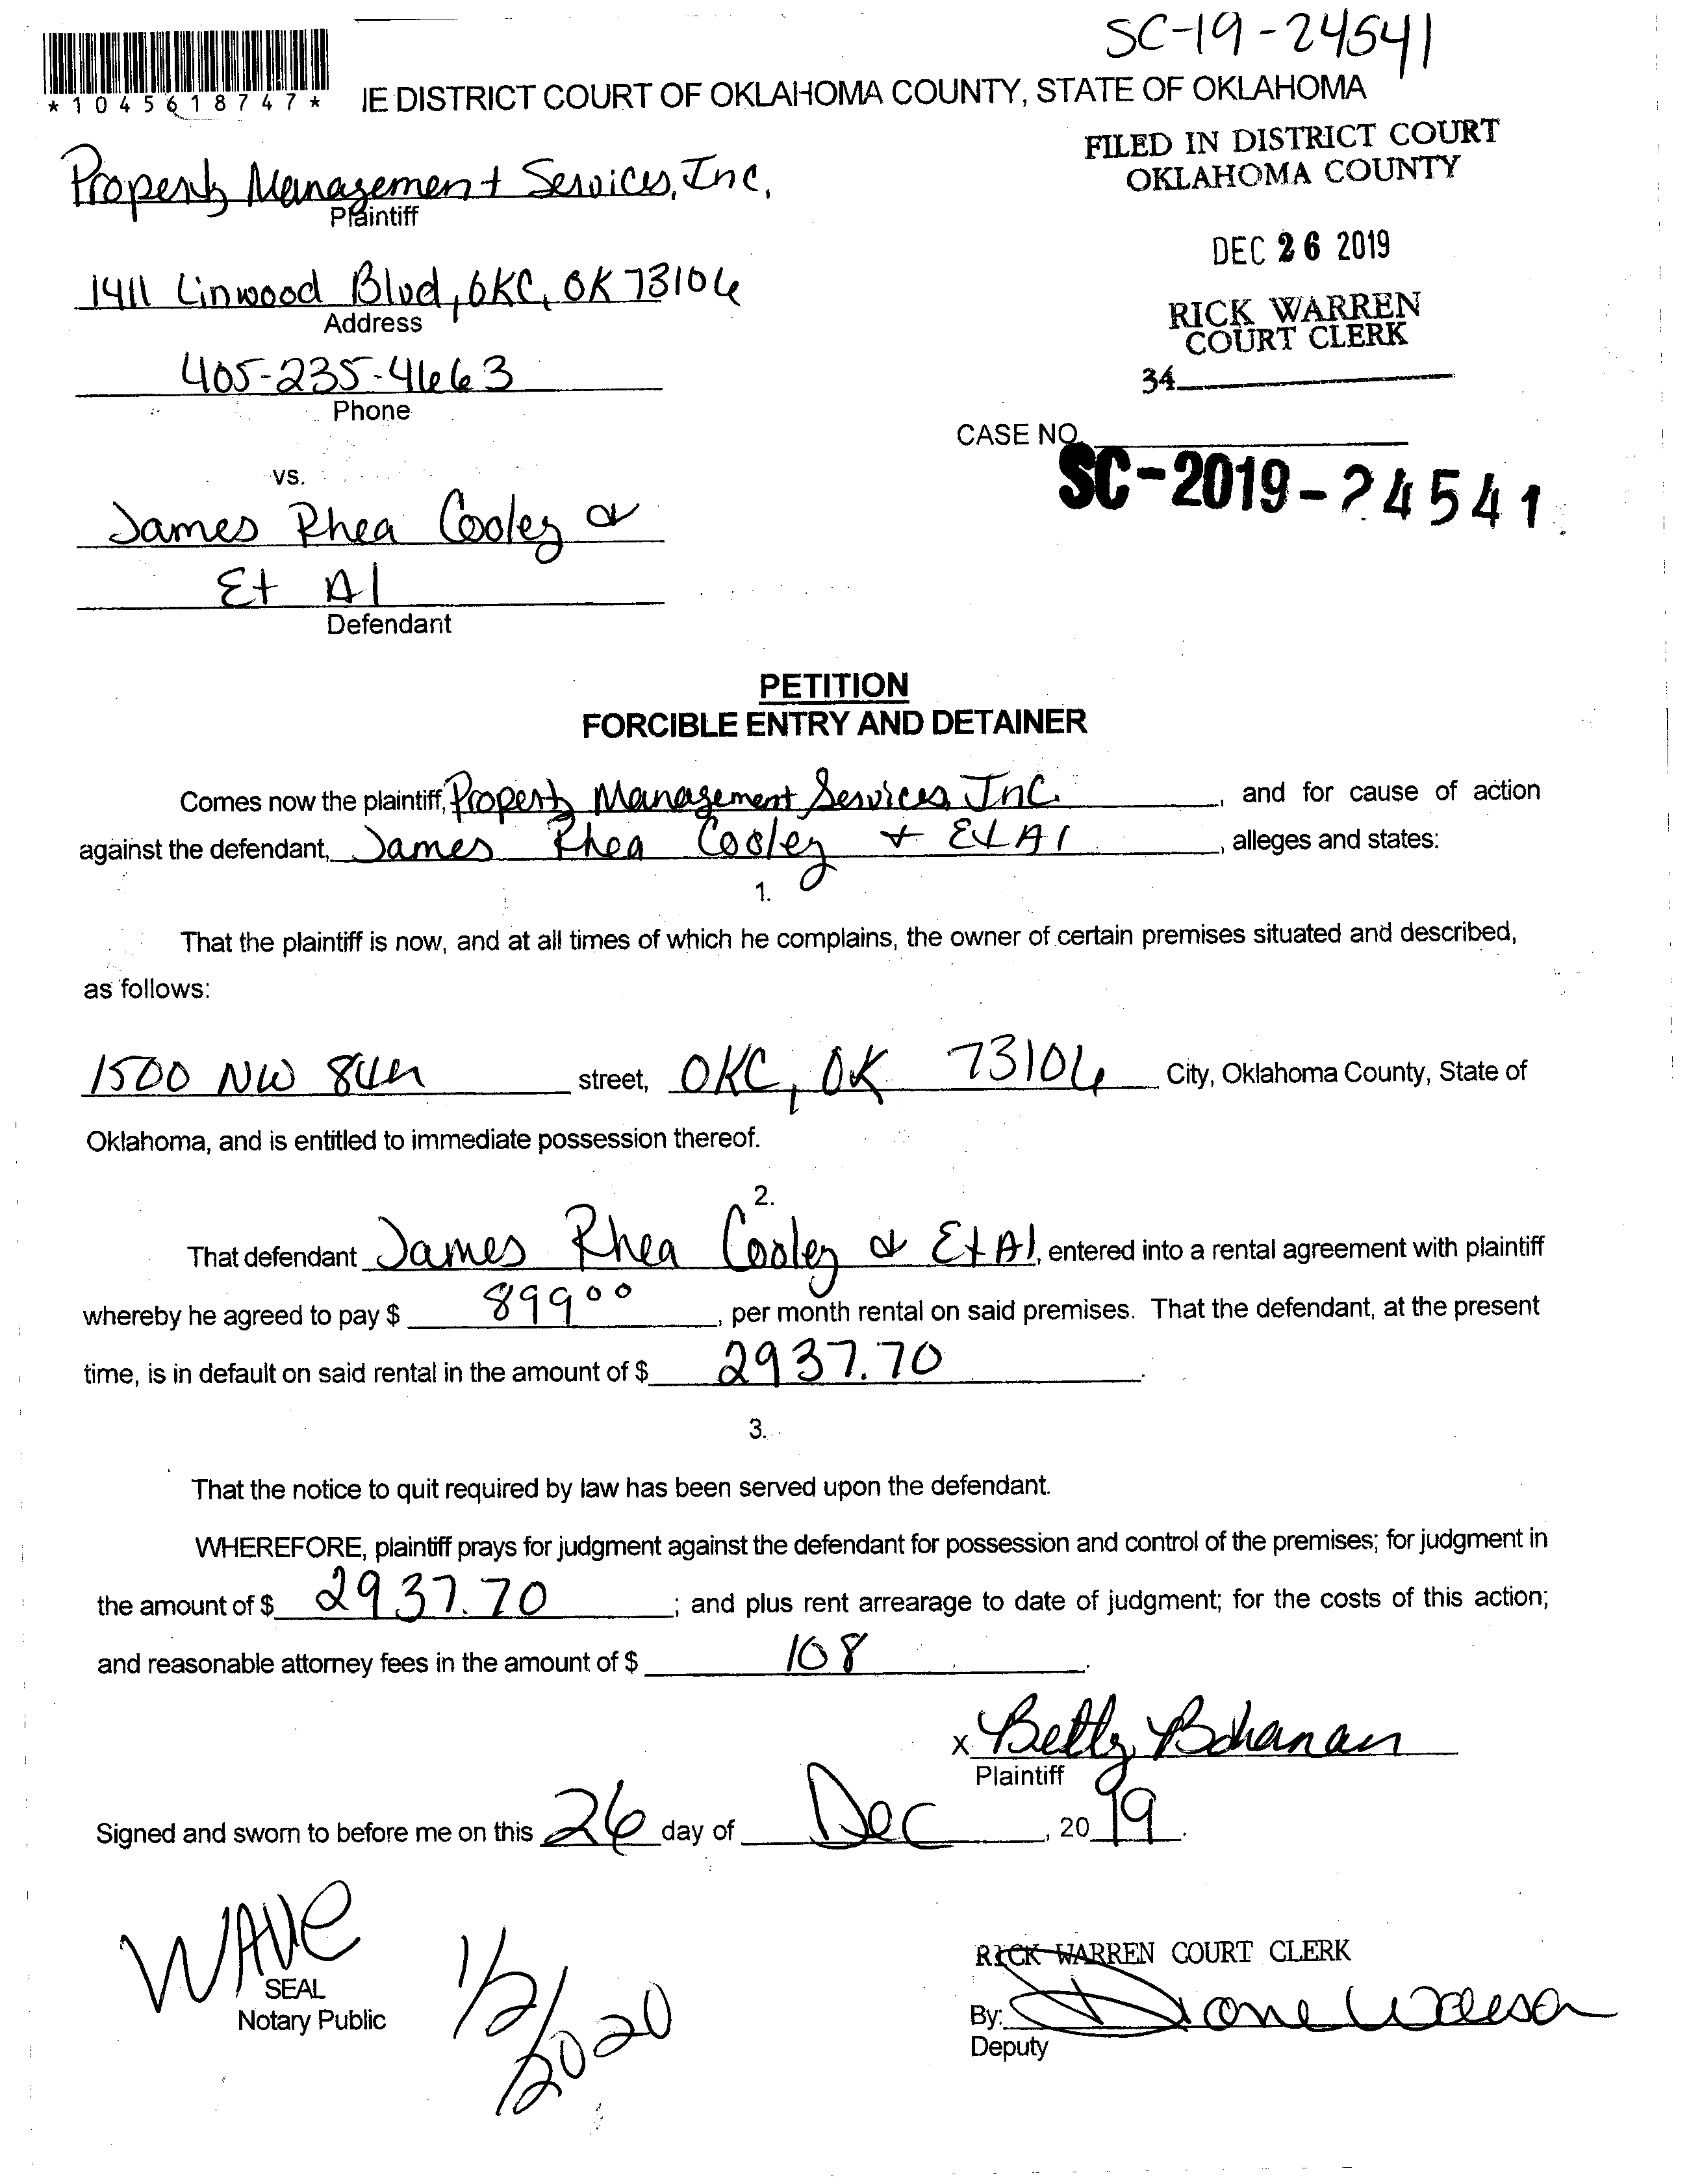 SC-19-24541
*1045618747*
IE DISTRICT COURT OF OKLAHOMA COUNTY, STATE OF OKLAHOMA
FILED IN DISTRICT COURT
OKLAHOMA COUNTY
Property Management Services, Inc.
Plaintiff
DEC 26 2019
1411 Linwood Blvd, OKC, OK 73106
Address
RICK WARREN
COURT CLERK
405-235-4663
Phone
34
CASE NO.
SC-2019-24541
vs.
James Rhea Cooley &
Et Al
Defendant
PETITION
FORCIBLE ENTRY AND DETAINER
Comes now the plaintiff, Property Management Services, Inc. , and for cause of action
against the defendant, James Rhea Cooley + Et Al , alleges and states:
1.
That the plaintiff is now, and at all times of which he complains, the owner of certain premises situated and described,
as follows:
1500 NW 8th street, OKC, OK 73106 City, Oklahoma County, State of
Oklahoma, and is entitled to immediate possession thereof.
2.
That defendant James Rhea Cooley & Et Al, entered into a rental agreement with plaintiff
whereby he agreed to pay $ 899 00 , per month rental on said premises. That the defendant, at the present
time, is in default on said rental in the amount of $ 2937.70 .
3.
That the notice to quit required by law has been served upon the defendant.
WHEREFORE, plaintiff prays for judgment against the defendant for possession and control of the premises; for judgment in
the amount of $ 2937.70 ; and plus rent arrearage to date of judgment; for the costs of this action;
and reasonable attorney fees in the amount of $ 108 .
x Betty Bohanan
Plaintiff
Signed and sworn to before me on this 26 day of Dec , 20 19 .
WAVE
SEAL
Notary Public
1/2/2020
RICK WARREN COURT CLERK
By: Diane
Deputy